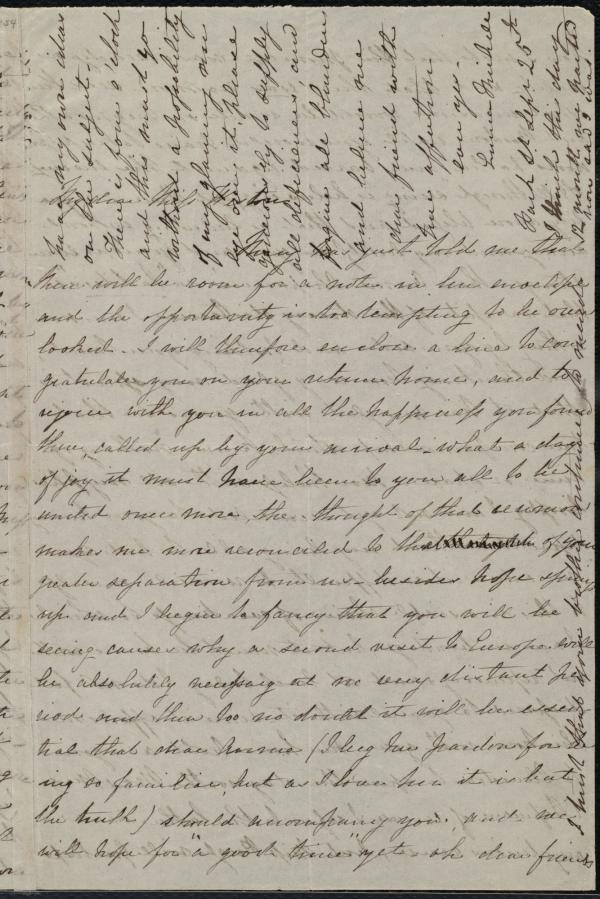 My dear Miss Weston
Mary has just told me that
there will be room for a note in her envelope
and the opportunity is too tempting to be over
looked. I will therefore enclose a line to con
gratulate you on your return home, and to
rejoice with you in all the happiness you found
there, called up by your arrival - what a day
of joy it must have been to you all to be
united once more, the thought of that reunion
makes me more reconciled to the of your
greater separation from us - besides hope springs
up and I begin to fancy that you will be
seeing causes why a second visit to Europe will
be absolutely necessary at no very distant pe
riod and then too no doubt it will be essen
tial that dear Annie (I beg her pardon for be
ing so familiar, but as I love her it is but
the truth) should accompany you, and we
will hope for "a good time" yet - oh dear friend
have my own ideas
on the subject.
There is four o'clock
and this must go
without a possibility
of my glancing an
eye over it, please
generously to supply
all deficiencies, and
forgive all blunders
and believe me
dear friend with
true affection
ever yrs.
Emma Michell
Park St Sept 25th
I think the day
12 months we parted
how sad I was.
I trust that your brother continues to mend